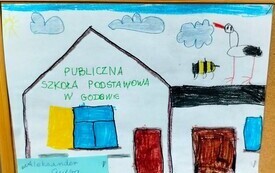 PUBLICZNA
SZKOŁA PODSTAWOWA
W GODOWIE
Aleksander